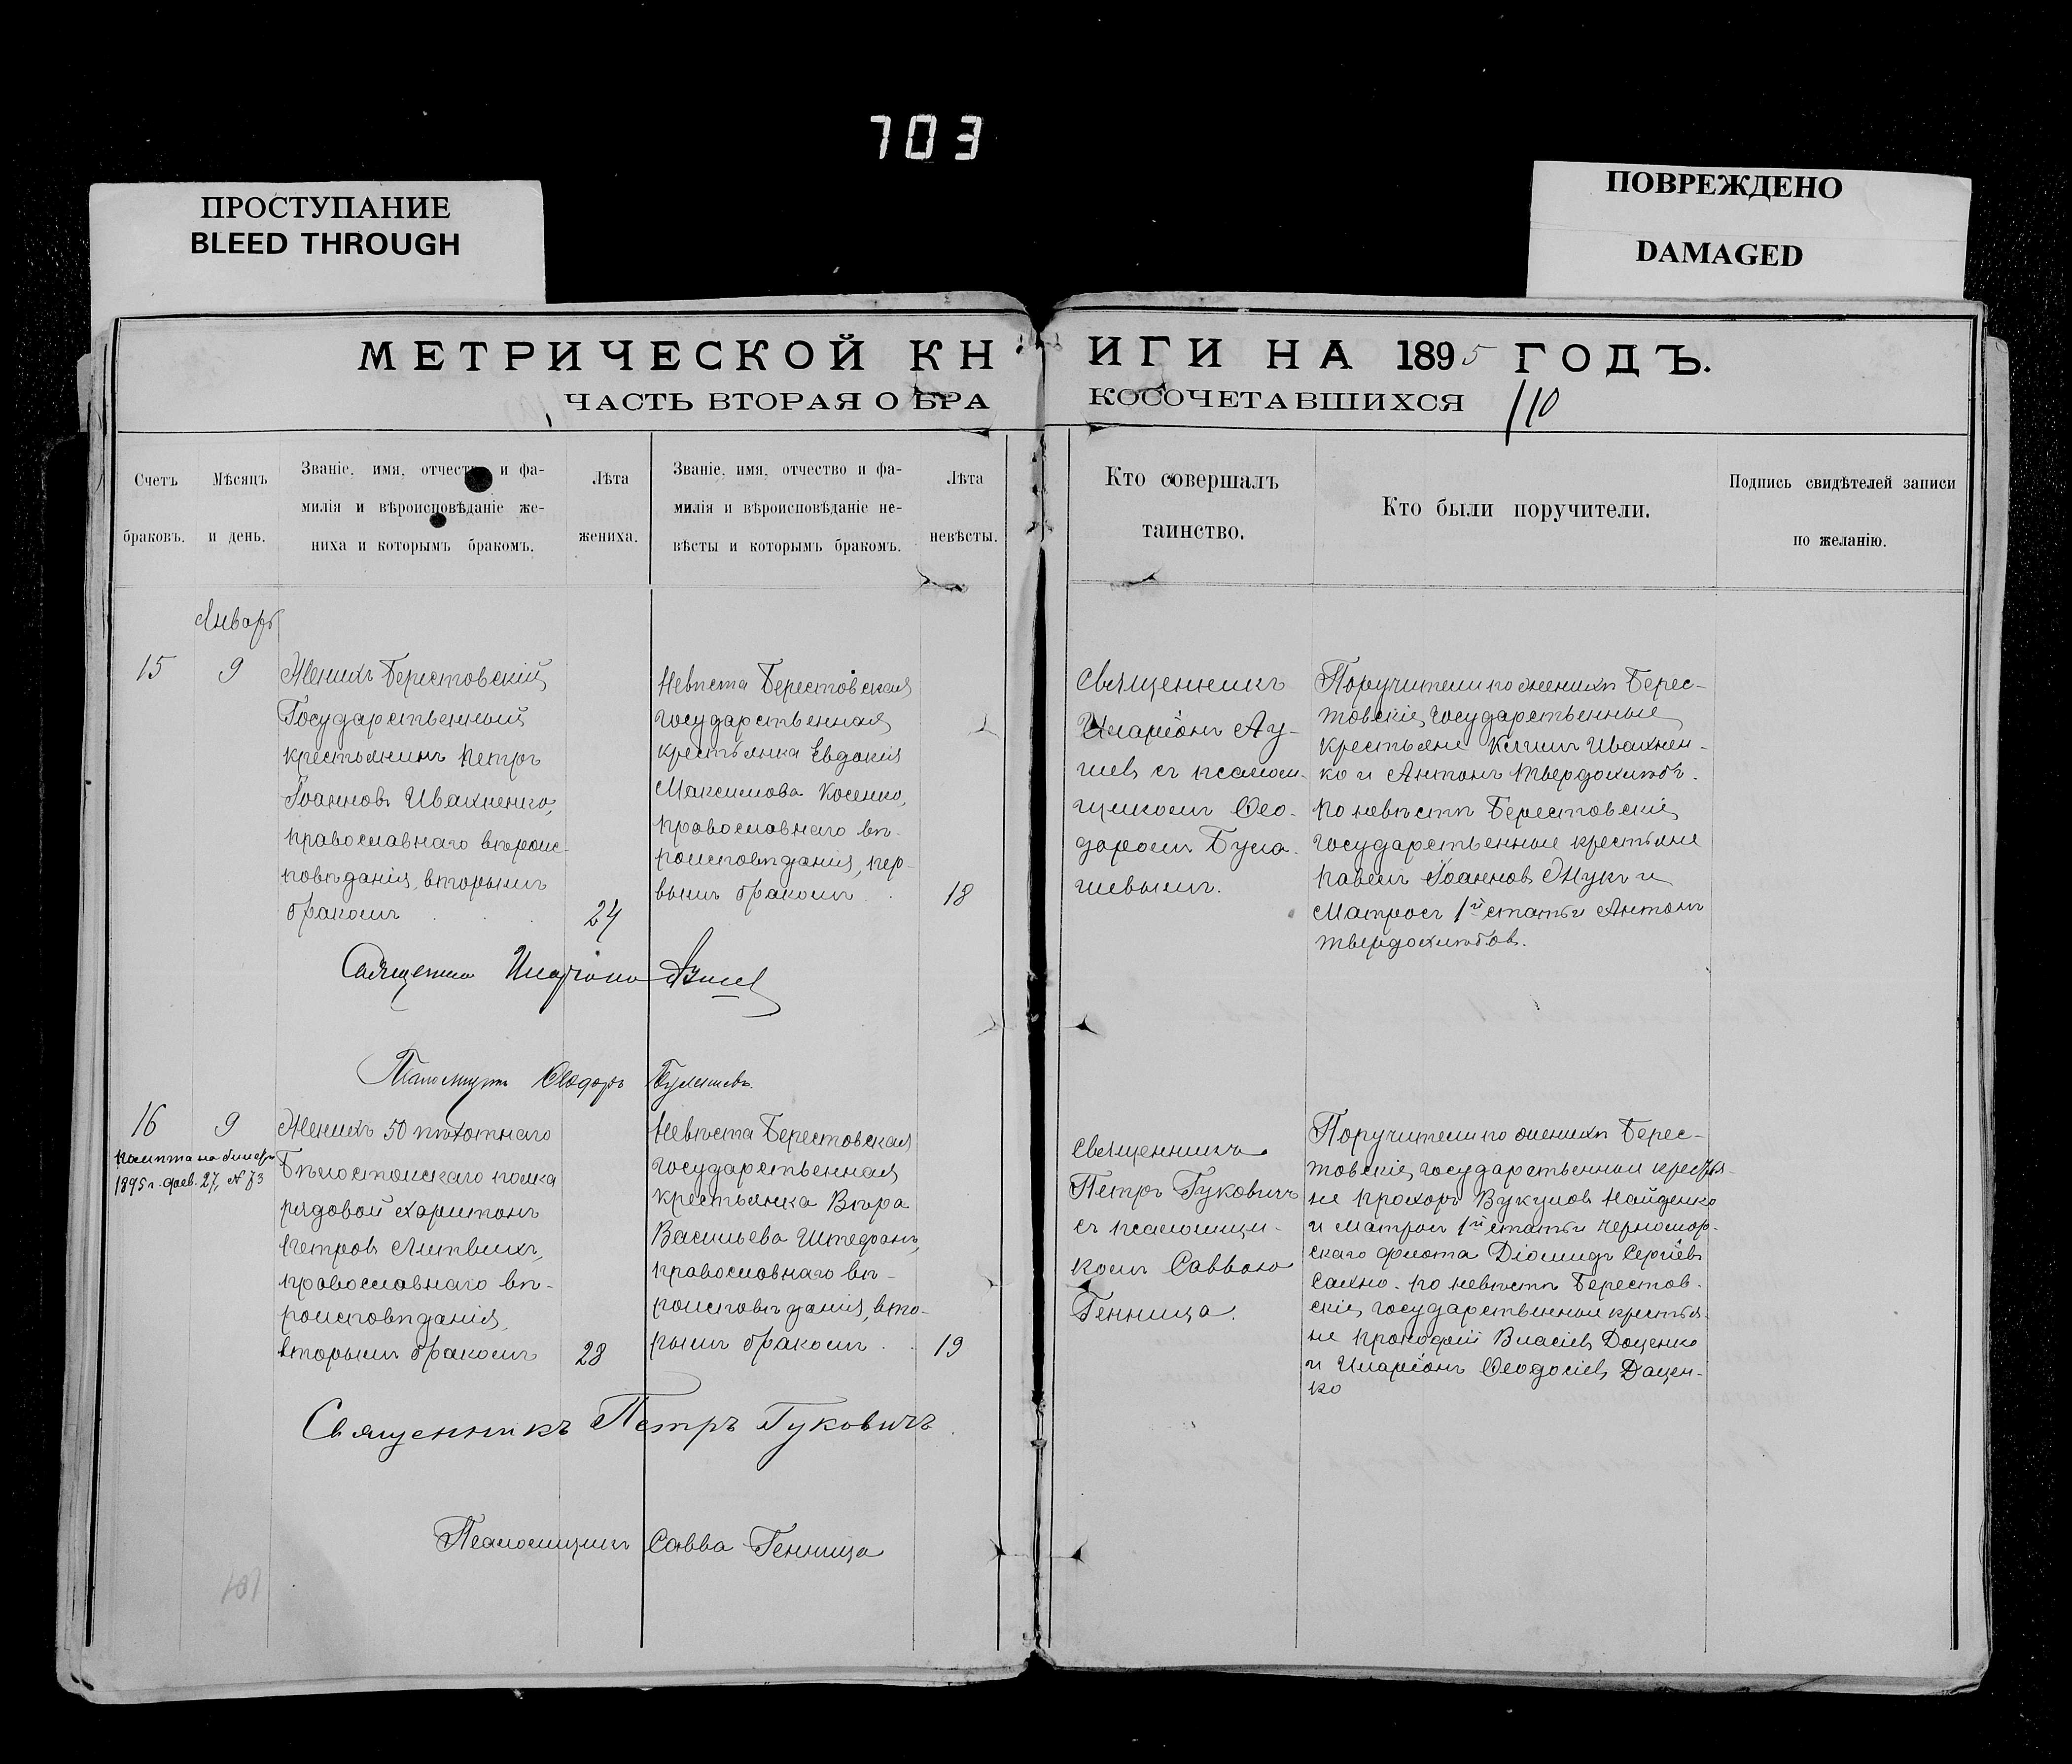 703
ПРОСТУПАНИЕ
BLEED THROUGH
ПОВРЕЖДЕНО
DAMAGED
МЕТРИЧЕСКОЙ КНИГИ НА 1895 ГОДЪ.
ЧАСТЬ ВТОРАЯ О БРАКОСОЧЕТАВШИХСЯ 110
Счетъ
браковъ.
Мѣсяцъ
и день.
Званіе, имя, отчество и фа-
милія и вѣроисповѣданіе же-
ниха и которымъ бракомъ.
Лѣта
жениха.
Званіе, имя, отчество и фа-
милія и вѣроисповѣданіе не-
вѣсты и которымъ бракомъ.
Лѣта
невѣсты.
Кто совершалъ
таинство.
Кто были поручители.
Подпись свидѣтелей записи
по желанію.
Январь
15
9
Женихъ Берестовскій
Государственный
крестьянинъ Петръ
Іоанновъ Ивахненко,
православнаго вѣроис-
повѣданія, вторымъ
бракомъ
24
Невѣста Берестовская
государственная
крестьянка Евдокія
Максимова Косенко,
православнаго вѣ-
роисповѣданія, пер-
вымъ бракомъ
18
Священникъ
Иларіонъ Ау-
шев съ псалом-
щикомъ Ѳео-
доромъ Була-
шевымъ.
Поручители по женихѣ Берес-
товскіе государственные
крестьяне Климъ Ивахнен-
ко и Антонъ Твердохлѣбъ.
По невѣстѣ Берестовскіе
государственные крестьяне
Павелъ Іоанновъ Жукъ и
Матросъ 1й статьи Антонъ
Твердохлѣбов.
Священник Иларіонъ
Псаломщикъ Ѳеодоръ Булашевъ.
16
9
1895 г. фев. 27, № 73
Женихъ 50 пѣхотнаго
Бѣлостокскаго полка
рядовой Харитонъ
Петровъ Литвинъ,
православнаго вѣ-
роисповѣданія,
вторымъ бракомъ
28
Невѣста Берестовская
государственная
крестьянка Вѣра
Васильева Штефанъ,
православнаго вѣ-
роисповѣданія, вто-
рымъ бракомъ
19
Священникъ
Петръ Гуковичъ
съ псаломщи-
комъ Саввою
Генница.
Поручители по женихѣ Берес-
товскіе государственныи крестья-
не Прохоръ Вукулов Найденко
и матросъ 1й статьи Черномор-
скаго флота Діомидъ Сергіев
Сахно. По невѣстѣ Берестов-
скіе государственныи крестья-
не Прокофій Власіев Доценко
и Иларіонъ Ѳеодосіев Дацен-
ко
Священникъ Петръ Гуковичъ
Псаломщикъ Савва Генница